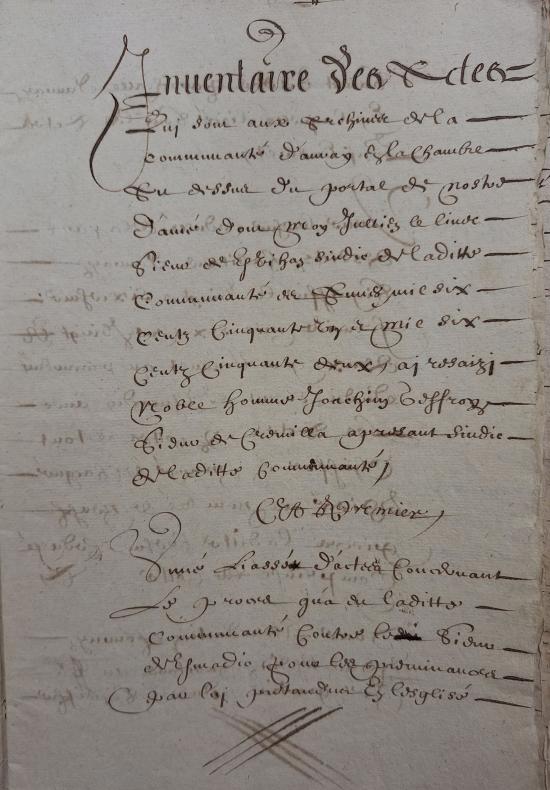 Inuentaire des Actes
Qui sont aux Archiues de la
Communauté d'auray en la Chambre
Au dessus du portal de Nostre
dame dont Moy Jullien le liure
Sieur de sindic de laditte
Communauté es Années mil six
Centz Cinquante vn et Mil six
Centz Cinquante deux, ai resaizi
Noble homme Joachim Geffroy
Sieur de Cremilla apresant sindic
de laditte Communauté
Et Premier
Vnne Liasse d'actes Concernant
Le proces qua eu laditte
Communauté Contre le Sieur
de Kmadio pour les preminances
par luy pretandeus En lesglise